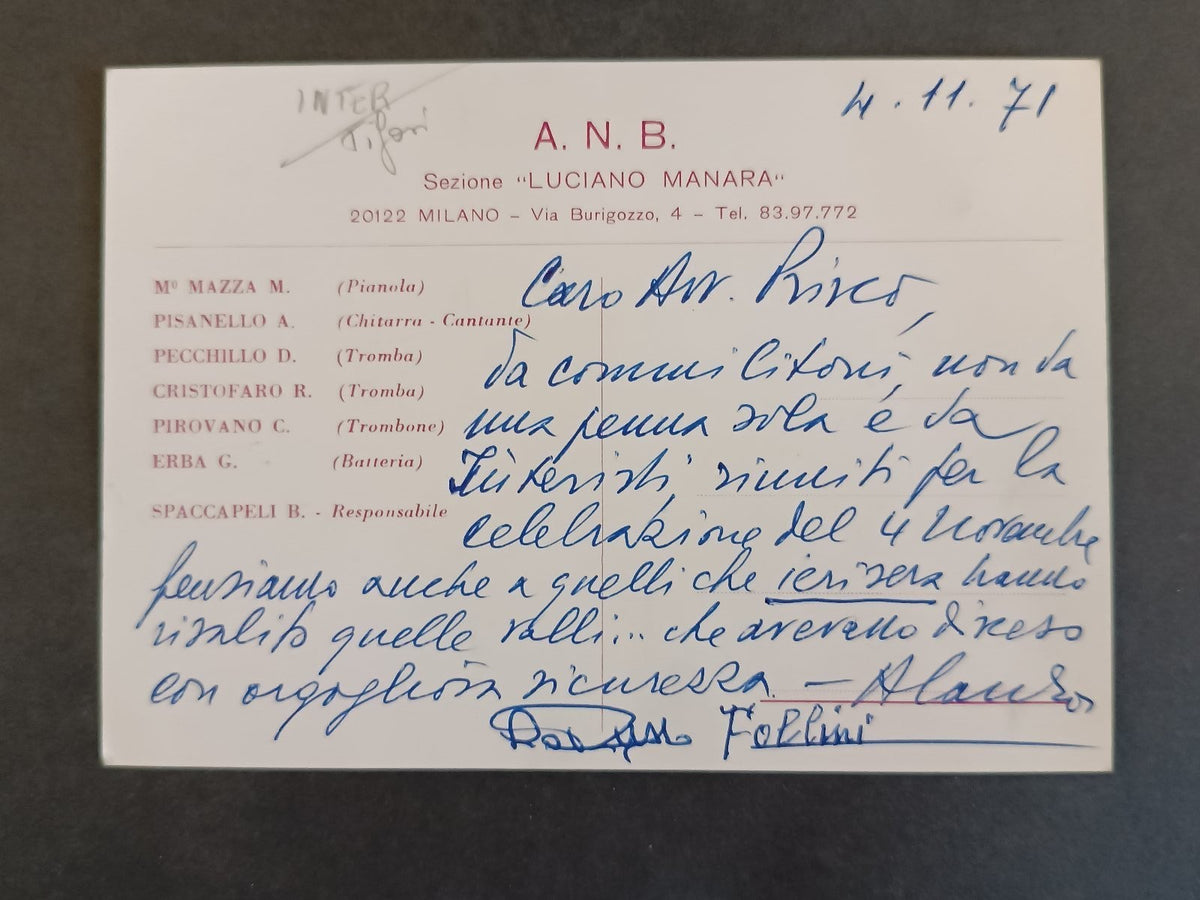 INTER
Tifosi
4.11.71
A. N. B.
Sezione "LUCIANO MANARA"
20122 MILANO - Via Burigozzo, 4 - Tel. 83.97.772
Mº MAZZA M. (Pianola)
PISANELLO A. (Chitarra - Cantante)
PECCHILLO D. (Tromba)
CRISTOFARO R. (Tromba)
PIROVANO C. (Trombone)
ERBA G. (Batteria)
SPACCAPELI B. - Responsabile
Caro Avv. Prisco,
da commilitoni, non da
una penna sola e da
Interisti, riuniti per la
celebrazione del 4 Novembre
pensiamo anche a quelli che ierisera hanno
risalito quelle valli... che avevano disceso
con orgogliosa sicurezza. -
Follini